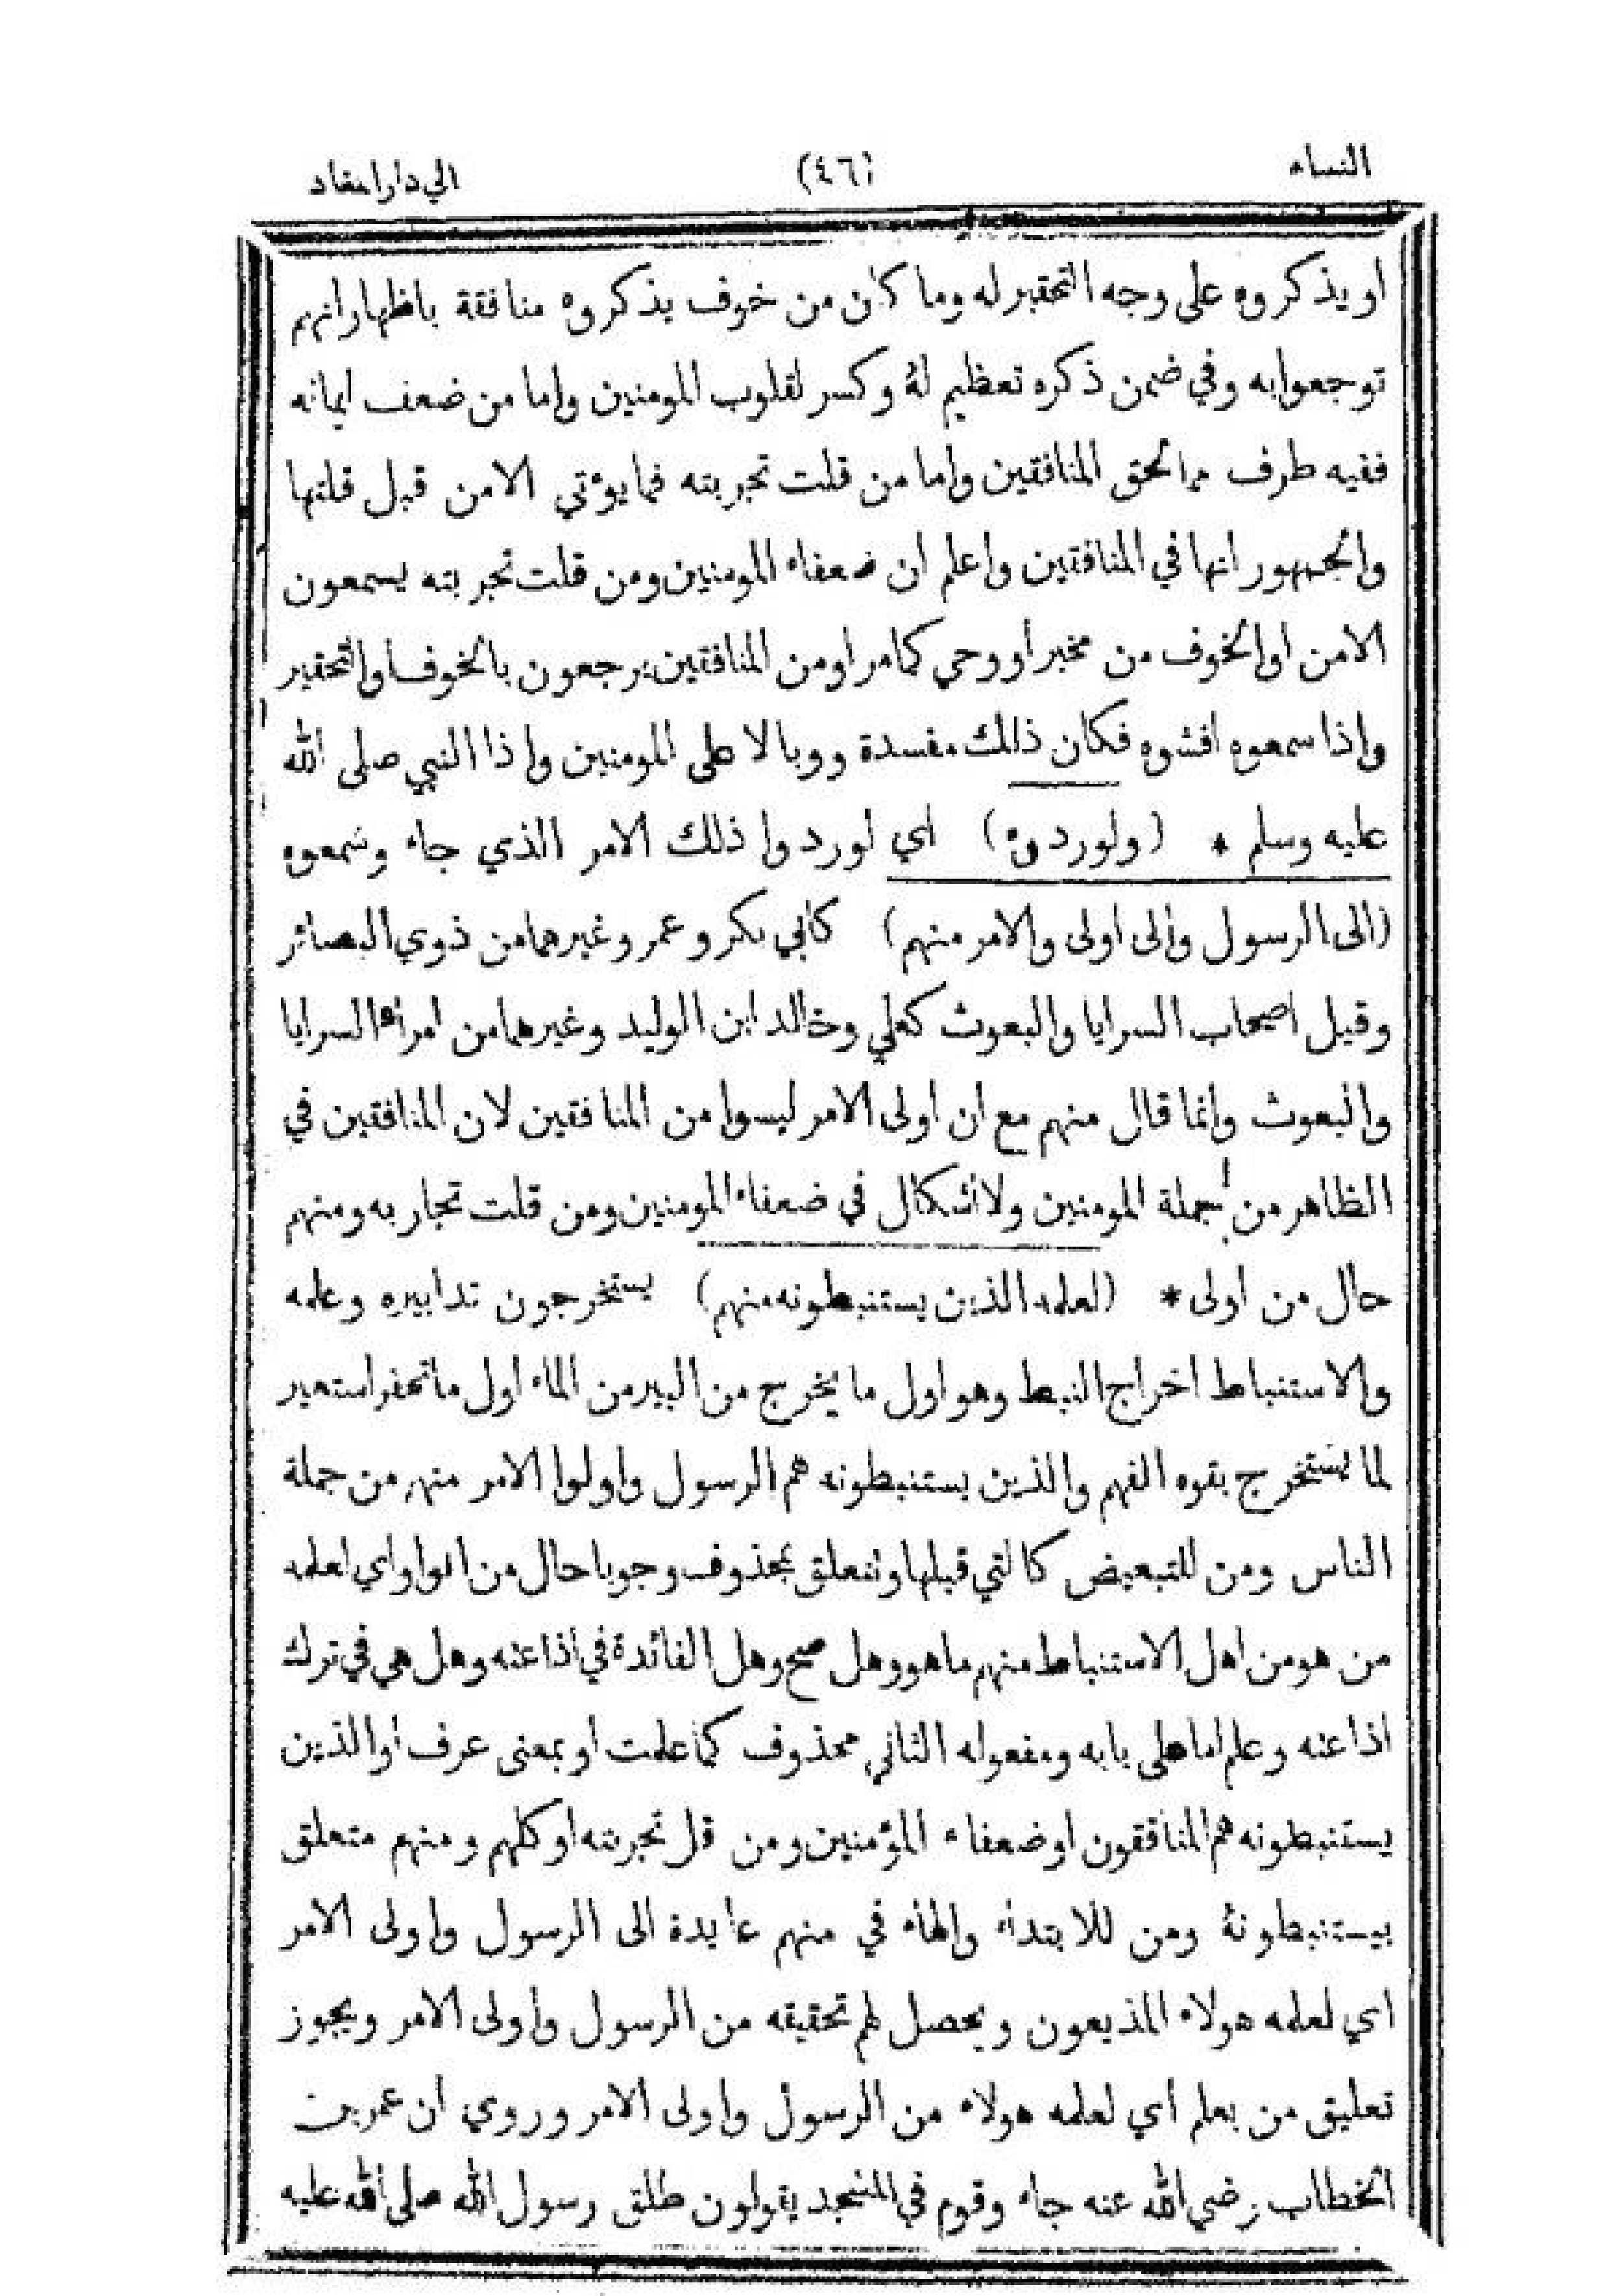 النساء (٤٦) الي دارامعاد
او يذكروه على وجه التحقير له وما كان من خوف يذكروه منافقة باظهار انهم
توجعوا به وفي ضمن ذكره تعظيم له وكسر لقلوب المومنين واما من ضعف ايمانه
ففيه طرف مما لحق المنافقين واما من قلت تجربته فما يؤتي الامن قبل قلتها
والجمهور انها في المنافقين واعلم ان ضعفاء المومنين ومن قلت تجربته يسمعون
الامن او الخوف من مخبر أو وحي كما مر او من المنافقين يرجعون بالخوف او التحقير
واذا سمعوه افشوه فكان ذلك مفسدة ووبالا على المومنين واذا النبي صلى الله
عليه وسلم * (ولوردوه) اي لوردوا ذلك الامر الذي جاء وسمعوه
(الى الرسول والى اولى والامر منهم) كابي بكر و عمر وغيرهما من ذوي البصائر
وقيل اصحاب السرايا والبعوث كعلي وخالد ابن الوليد وغيرهما من امراء السرايا
والبعوث وانما قال منهم مع ان اولى الامر ليسوا من المنافقين لان المنافقين في
الظاهر من جملة المومنين ولا اشكال في ضعفاء المومنين ومن قلت تجاربه ومنهم
حال من اولى * (لعلمه الذين يستنبطونه منهم) يستخرجون تدابيره وعلمه
والاستنباط اخراج النبط وهو اول ما يخرج من البير من الماء اول ما تحفر استعير
لما يستخرج بقوه الفهم والذين يستنبطونه هم الرسول واولوا الامر منهم من جملة
الناس ومن للتبعيض كالتي قبلها وتتعلق بمحذوف وجوبا حال من الواو اي لعلمه
من هو من اهل الاستنباط منهم ما هو وهل صح وهل الفائدة في اذاعته وهل هي في ترك
اذاعته وعلم اما على بابه ومفعوله الثاني محذوف كما علمت أو بمعنى عرف أو الذين
يستنبطونه هم المنافقون او ضعفاء المؤمنين ومن قل تجربته او كلهم ومنهم متعلق
بيستنبطونه ومن للابتداء والهاء في منهم عايدة الى الرسول واولى الامر
اي لعلمه هولاء المذيعون ويحصل لهم تحقيقه من الرسول واولى الامر ويجوز
تعليق من بعلم أي لعلمه هولاء من الرسول واولى الامر وروي ان عمر بن
الخطاب رضي الله عنه جاء وقوم في المسجد يقولون طلق رسول الله صلى الله عليه